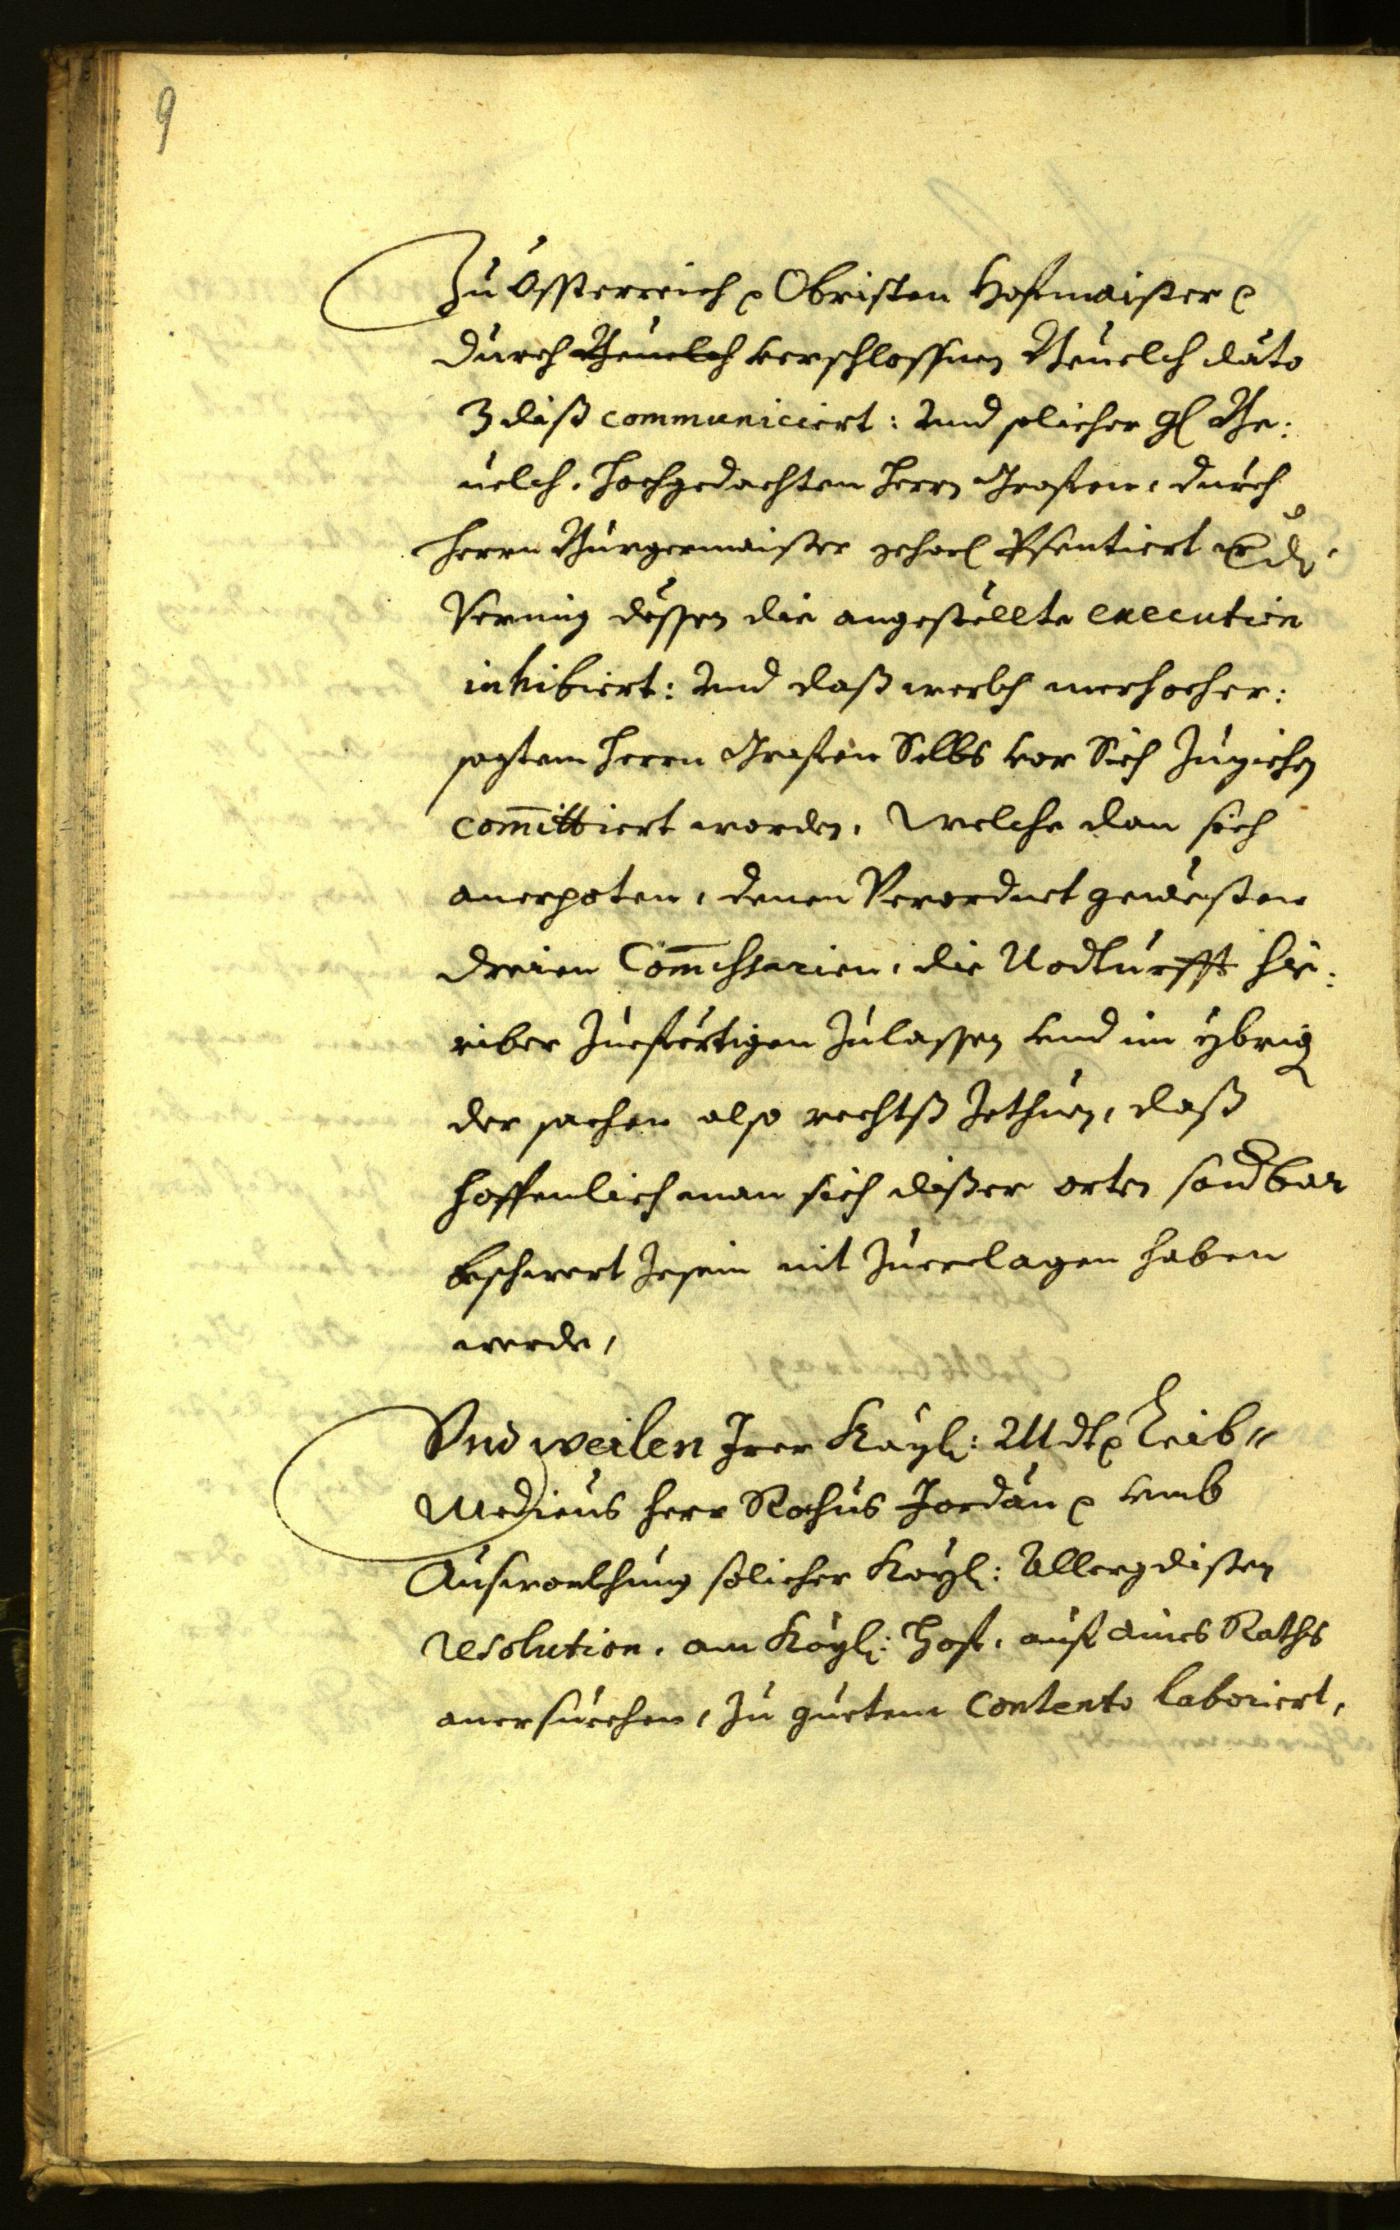 9
Zu Össterreich p Obristen Hofmaister p
durch Beuelch verschlossnen Beuelch dato
3 diß communiciert: und solicher gl Be:
uelch, hochgedachten Herrn Grafen, durch
Herrn Burgermaister gehorl Psentiert
Vermig dessen die angestellte execution
inhibiert: und daß werch merhocher:
sagtem Herrn Grafen Selbs vor Sich Zuziehen
com̄ittiert worden. Welche dan sich
anerpoten, denen Verordnet gewesten
dreien Com̄issarien, die Nodturfft hie:
riber Zuefertigen Zulassen und im ÿbrig
der sachen also rechts Zethuen, daß
hoffenlich man sich diser orten sondbar
beschwert Zesein nit Zueclagen haben
werde,
Vnd weilen Irer Kayl: Mdt p Leib„
Medicus Herr Rochus Jordan p umb
Auswürchung solicher Kayl: Allergdisten
resolution, am Kayl: Hof, auf aines Raths
anersuechen, Zu guetem Contento laboriert,